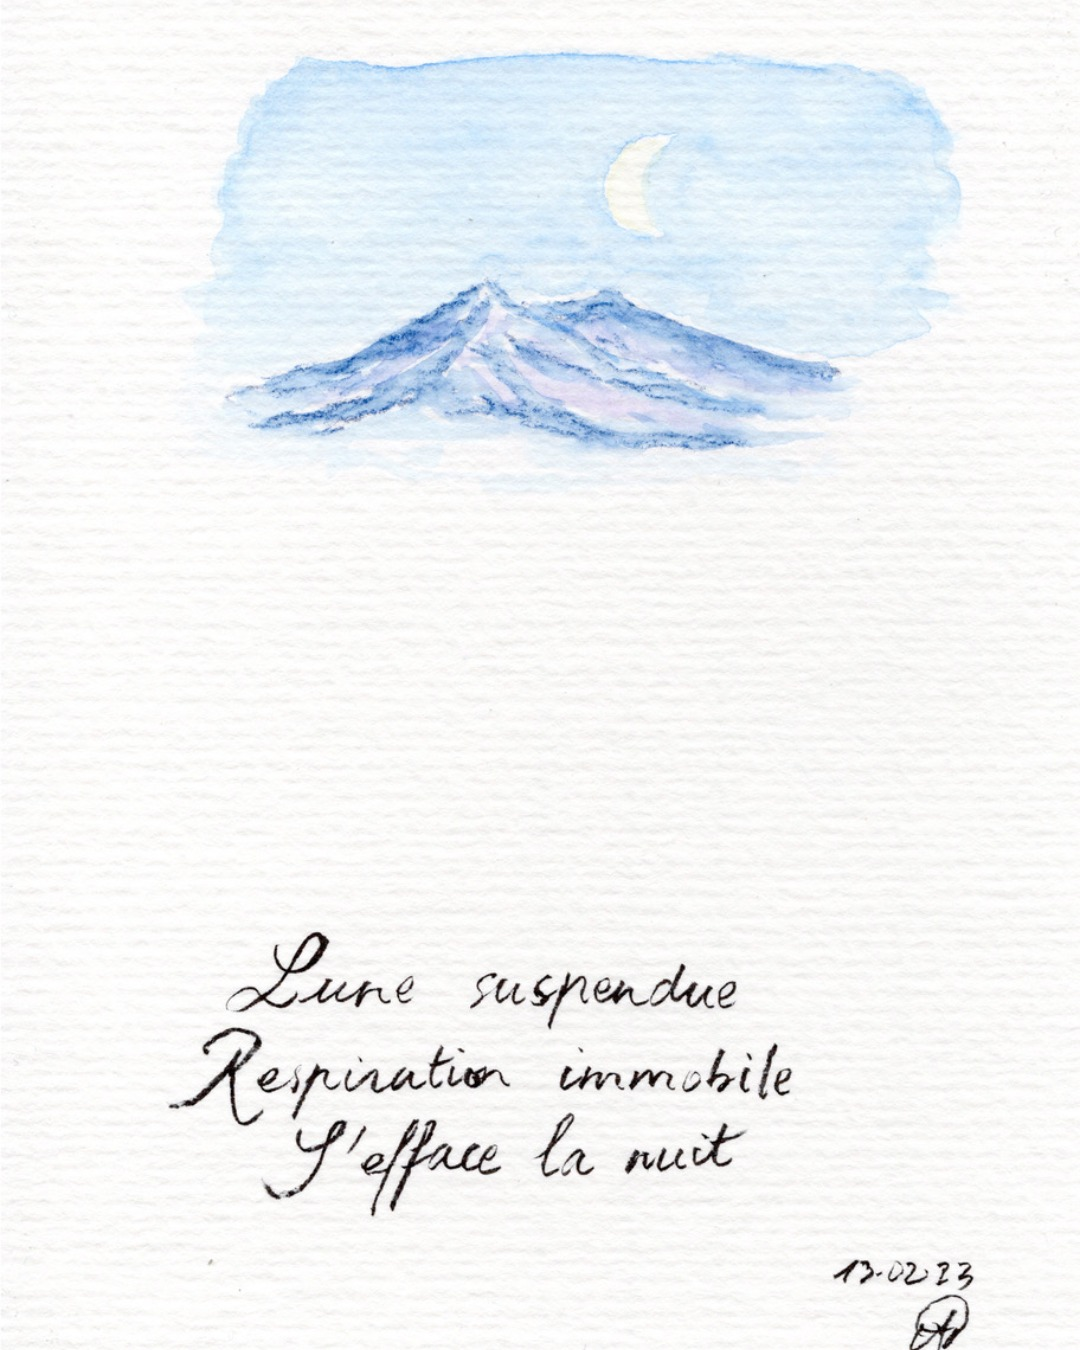 Lune suspendue
Respiration immobile
S'efface la nuit
13.02.23